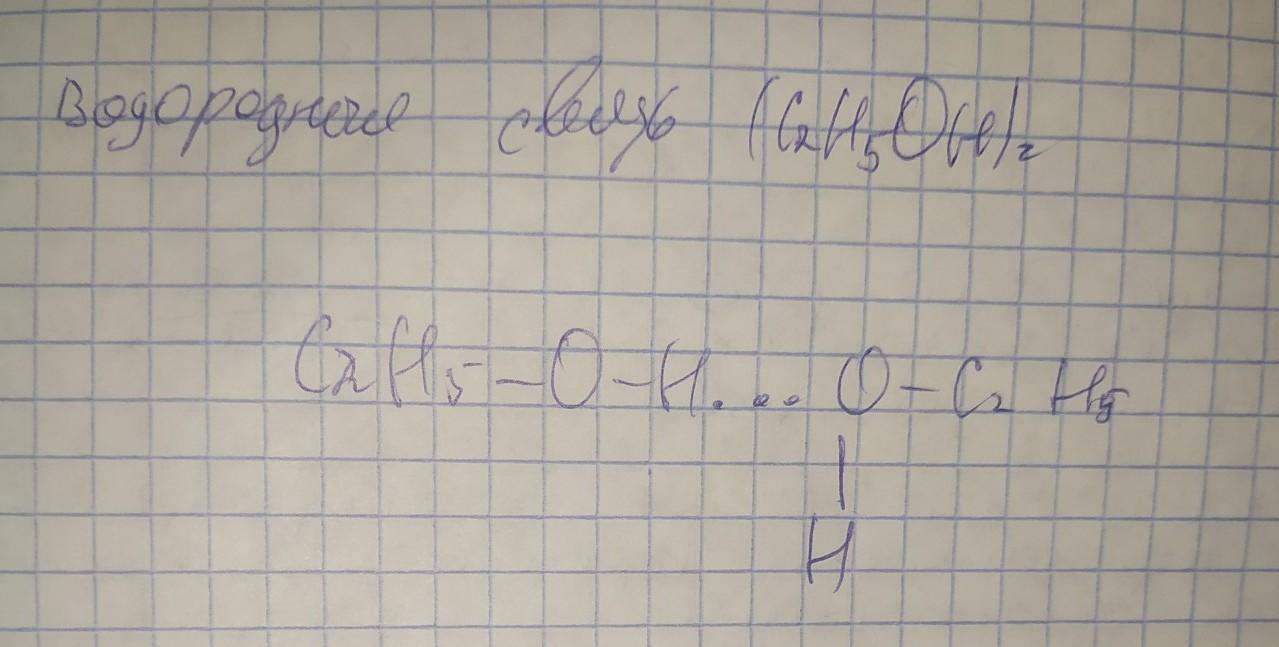 Водородные связь (C₂H₅OH)₂
C₂H₅–O–H...O–C₂H₅
|
H